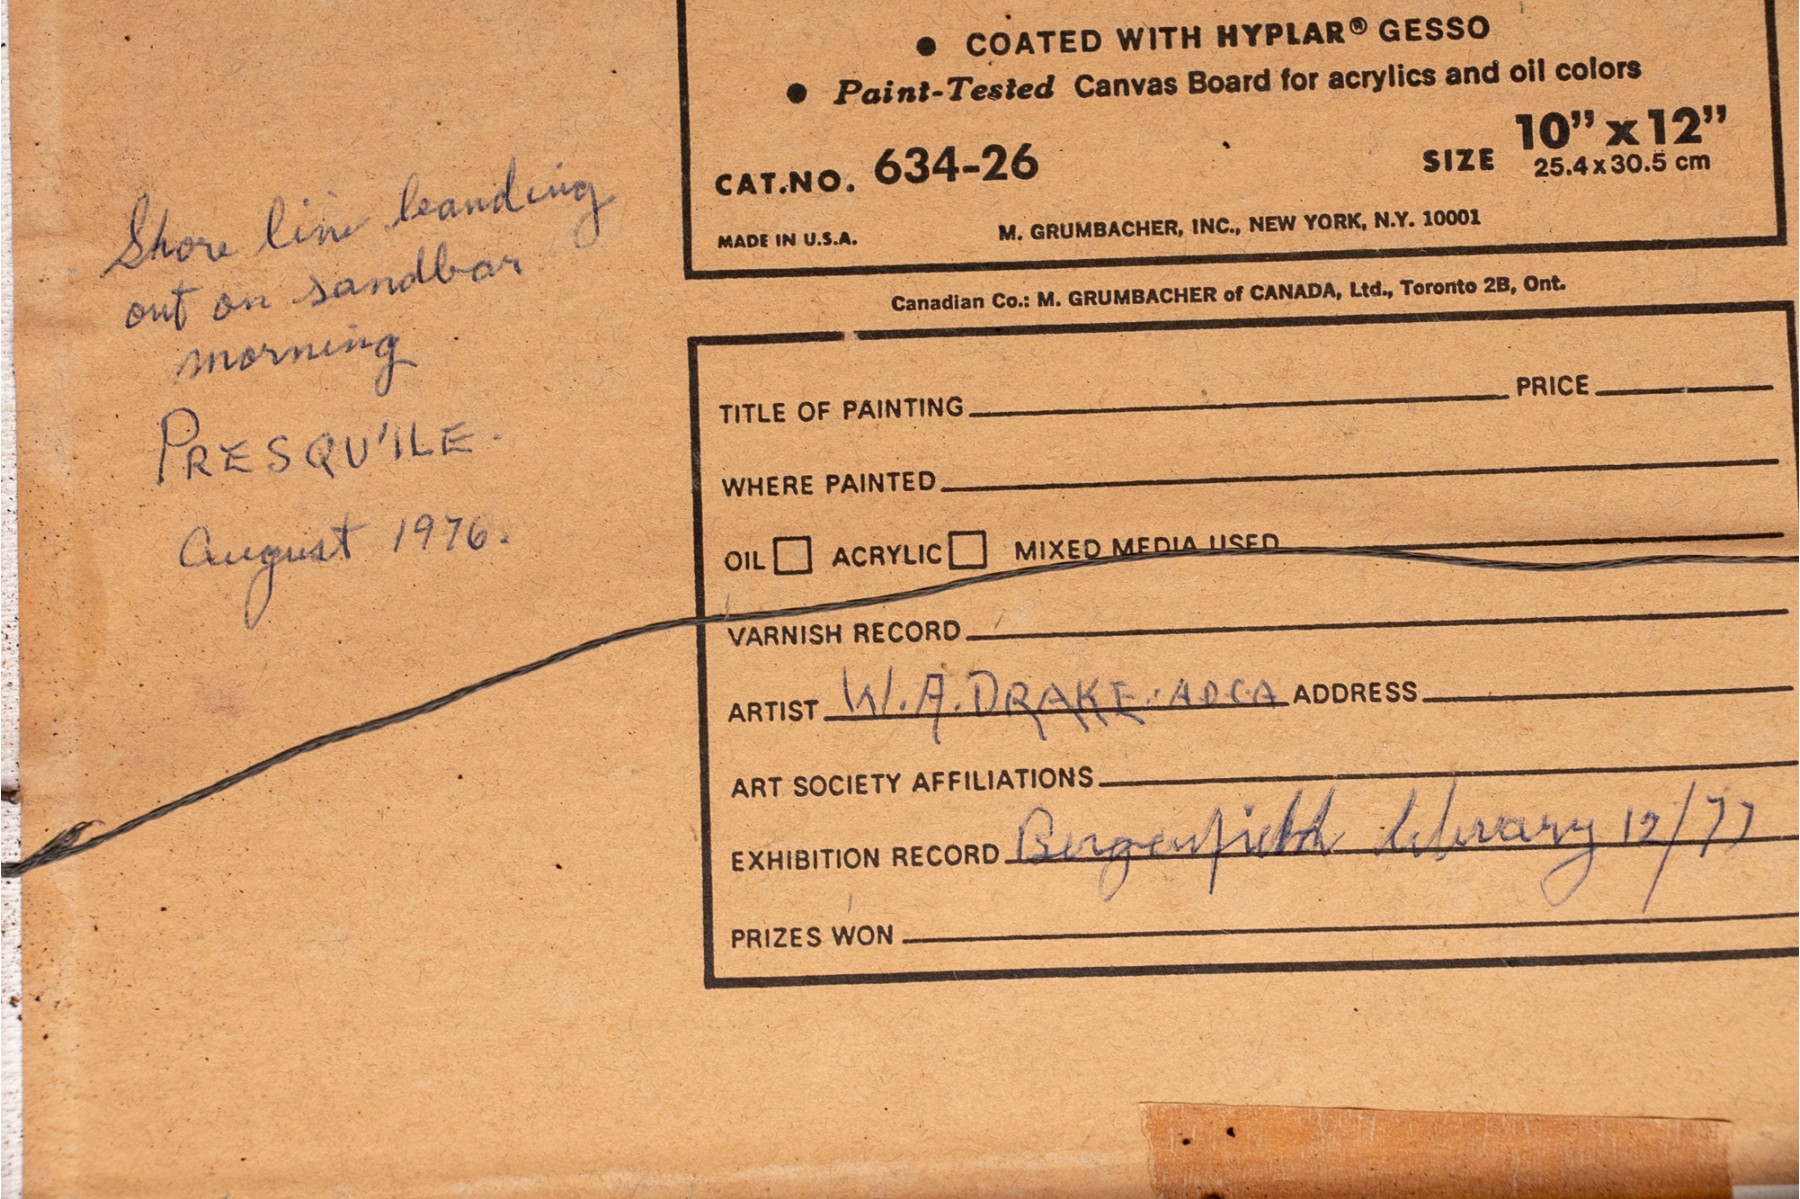 • COATED WITH HYPLAR® GESSO
• Paint-Tested Canvas Board for acrylics and oil colors
CAT.NO. 634-26
SIZE 10" x 12"
25.4 x 30.5 cm
MADE IN U.S.A.
M. GRUMBACHER, INC., NEW YORK, N.Y. 10001
Canadian Co.: M. GRUMBACHER of CANADA, Ltd., Toronto 2B, Ont.
Shore line leanding
out on sandbar
morning
PRESQU'ILE.
August 1976.
TITLE OF PAINTING PRICE
WHERE PAINTED
OIL ACRYLIC MIXED MEDIA USED
VARNISH RECORD
ARTIST W. A. DRAKE. ADCA ADDRESS
ART SOCIETY AFFILIATIONS
EXHIBITION RECORD Bergenfield Library 12/77
PRIZES WON